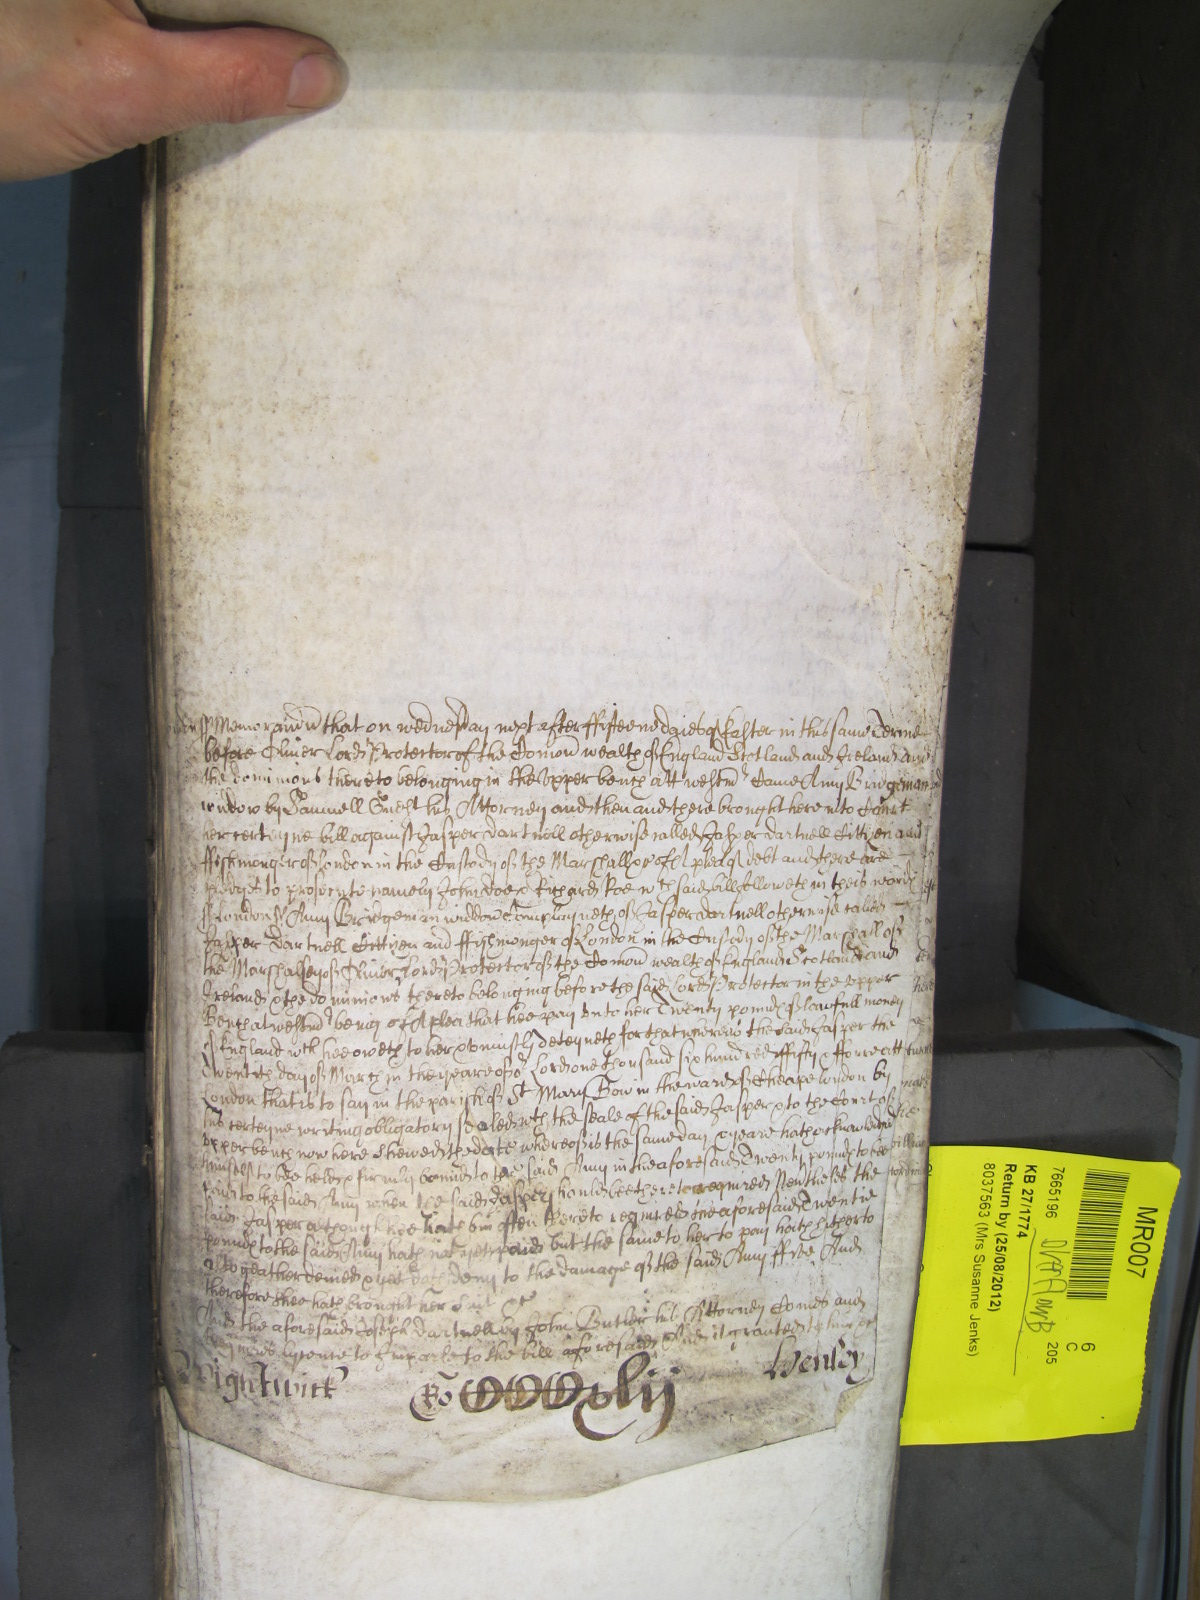 Memorand that on wednesday next after fifteene daies of Easter in this same Terme
before Oliver Lord Protector of the Comon wealth of England Scotland and Ireland and
the dominions thereto belonging in the Upper bench att westmr Came Amy Bridgeman
widow by Samuell his Attorney and then and there brought here into Court
her certeyne bill against Jasper Dartnell otherwise called Jasper Dartnell Cittizen and
ffishmonger of London in the Custody of the Marshall &c of a plea of debt and there are
pledges to prosecute namely John doe & Richard Roe wch said bill followeth in theis words
London ss Amy Bridgeman widdow Complayneth of Jasper Dartnell otherwise called
Jasper Dartnell Cittizen and ffishmonger of London in the Custody of the Marshall of
the Marshalsey of Oliver Lord Protector of the Comon wealth of England Scotland and
Ireland & the dominions thereto belonging before the said Lord Protector in the upper
Bench at westmr being of A plea that hee pay unto her Twenty pounds of lawfull money
of England wch hee oweth to her & uniustly deteyneth for that whereas the said Jasper the
Twentith day of March in the yeare of or Lord one thousand six hundred ffifty & fforre att
London that is to say in the parish of St Mary Bow in the ward of Cheape London by
his certeyne writing obligatory sealed wth the seale of the said Jasper & to the Court of
upper bench now here shewed the date whereof is the same day & yeare hath acknowledged
himself to bee held & firmly bound to the said Amy in the aforesaid Twenty pounds to bee
paid to the said Amy when hee said Jasper should bee thereto required Neverthelesse the
said Jasper although hee hath bin often thereto required the aforesaid Twentie
pounds to the said Amy hath not yett paid but the same to her to pay hath hitherto
altogeather denied & yet doth deny to the damage of the said Amy ffive And
therefore shee hath brought her suit &c
And the aforesaid Joseph Dartnell by John Butler his Attorney Comes and
leave to Imparle to the bill aforesaid And it is granted to him &c
Wightwick Ro CCCCxlij Henley
MR007
6
C
205
7665196
KB 27/1774
Return by (25/08/2012)
8037563 (Mrs Susanne Jenks)